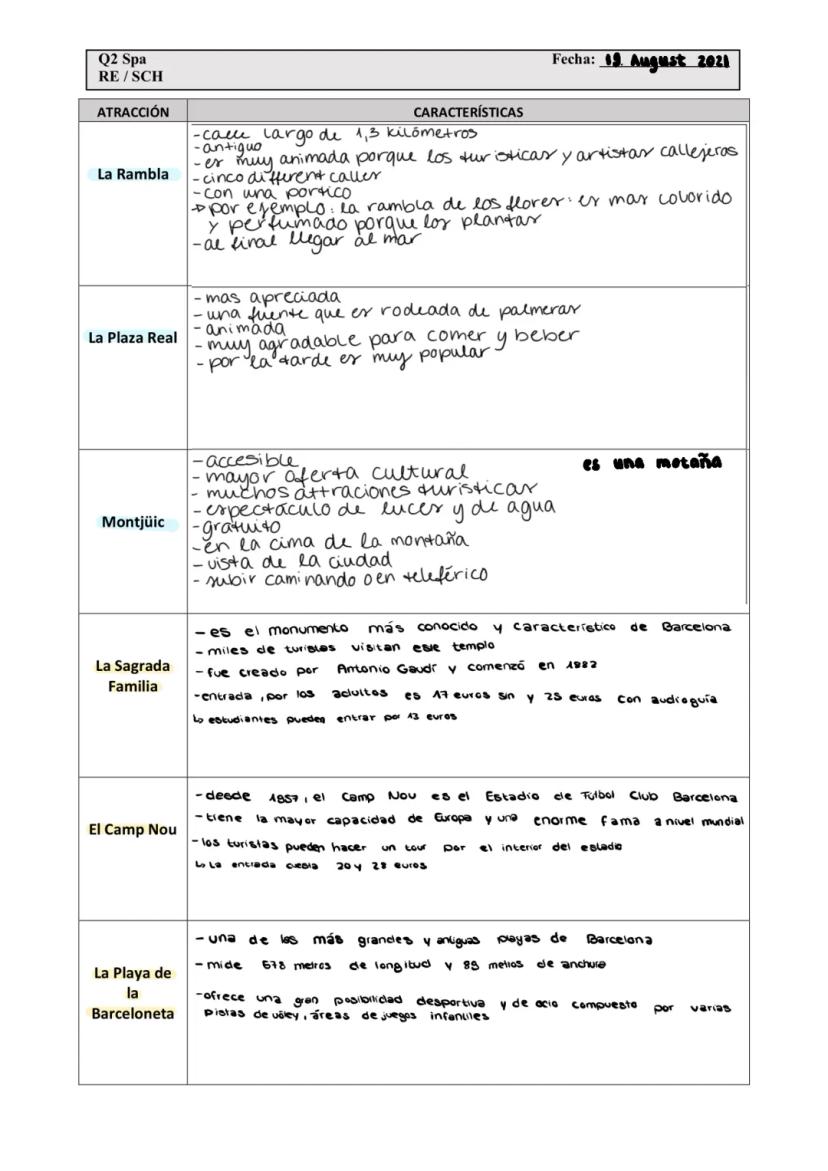 Q2 Spa
RE / SCH
Fecha: 19. August 2021
ATRACCIÓN
CARACTERÍSTICAS
La Rambla
-calle largo de 1,3 kilómetros
-antiguo
-es muy animada porque los turisticas y artistas callejeros
-cinco different calles
-con una portico
→ por ejemplo: la rambla de los flores: es mas colorido
y perfumado porque los plantas
-al final llegar al mar
La Plaza Real
- mas apreciada
- una fuente que es rodeada de palmeras
- animada
- muy agradable para comer y beber
- por la tarde es muy popular
Montjüic
es una motaña
- accesible
- mayor oferta cultural
- muchos attraciones turisticas
- espectáculo de luces y de agua
-gratuito
-en la cima de la montaña
- vista de la ciudad
- subir caminando o en teleférico
La Sagrada
Familia
- es el monumento más conocido y característico de Barcelona
- miles de turistas visitan este templo
- fue creado por Antonio Gaudí y comenzó en 1882
-entrada, por los adultos es 17 euros sin y 25 euros con audioguía
↳ estudiantes pueden entrar por 13 euros
El Camp Nou
- desde 1957, el Camp Nou es el Estadio de Fútbol Club Barcelona
- tiene la mayor capacidad de Europa y una enorme fama a nivel mundial
- los turistas pueden hacer un tour por el interior del estadio
↳ La entrada cuesta 20 y 28 euros
La Playa de
la
Barceloneta
- una de las más grandes y antiguas playas de Barcelona
- mide 678 metros de longitud y 89 metros de anchura
-ofrece una gran posibilidad desportiva y de ocio compuesto por varias
pistas de vóley, áreas de juegos infantiles